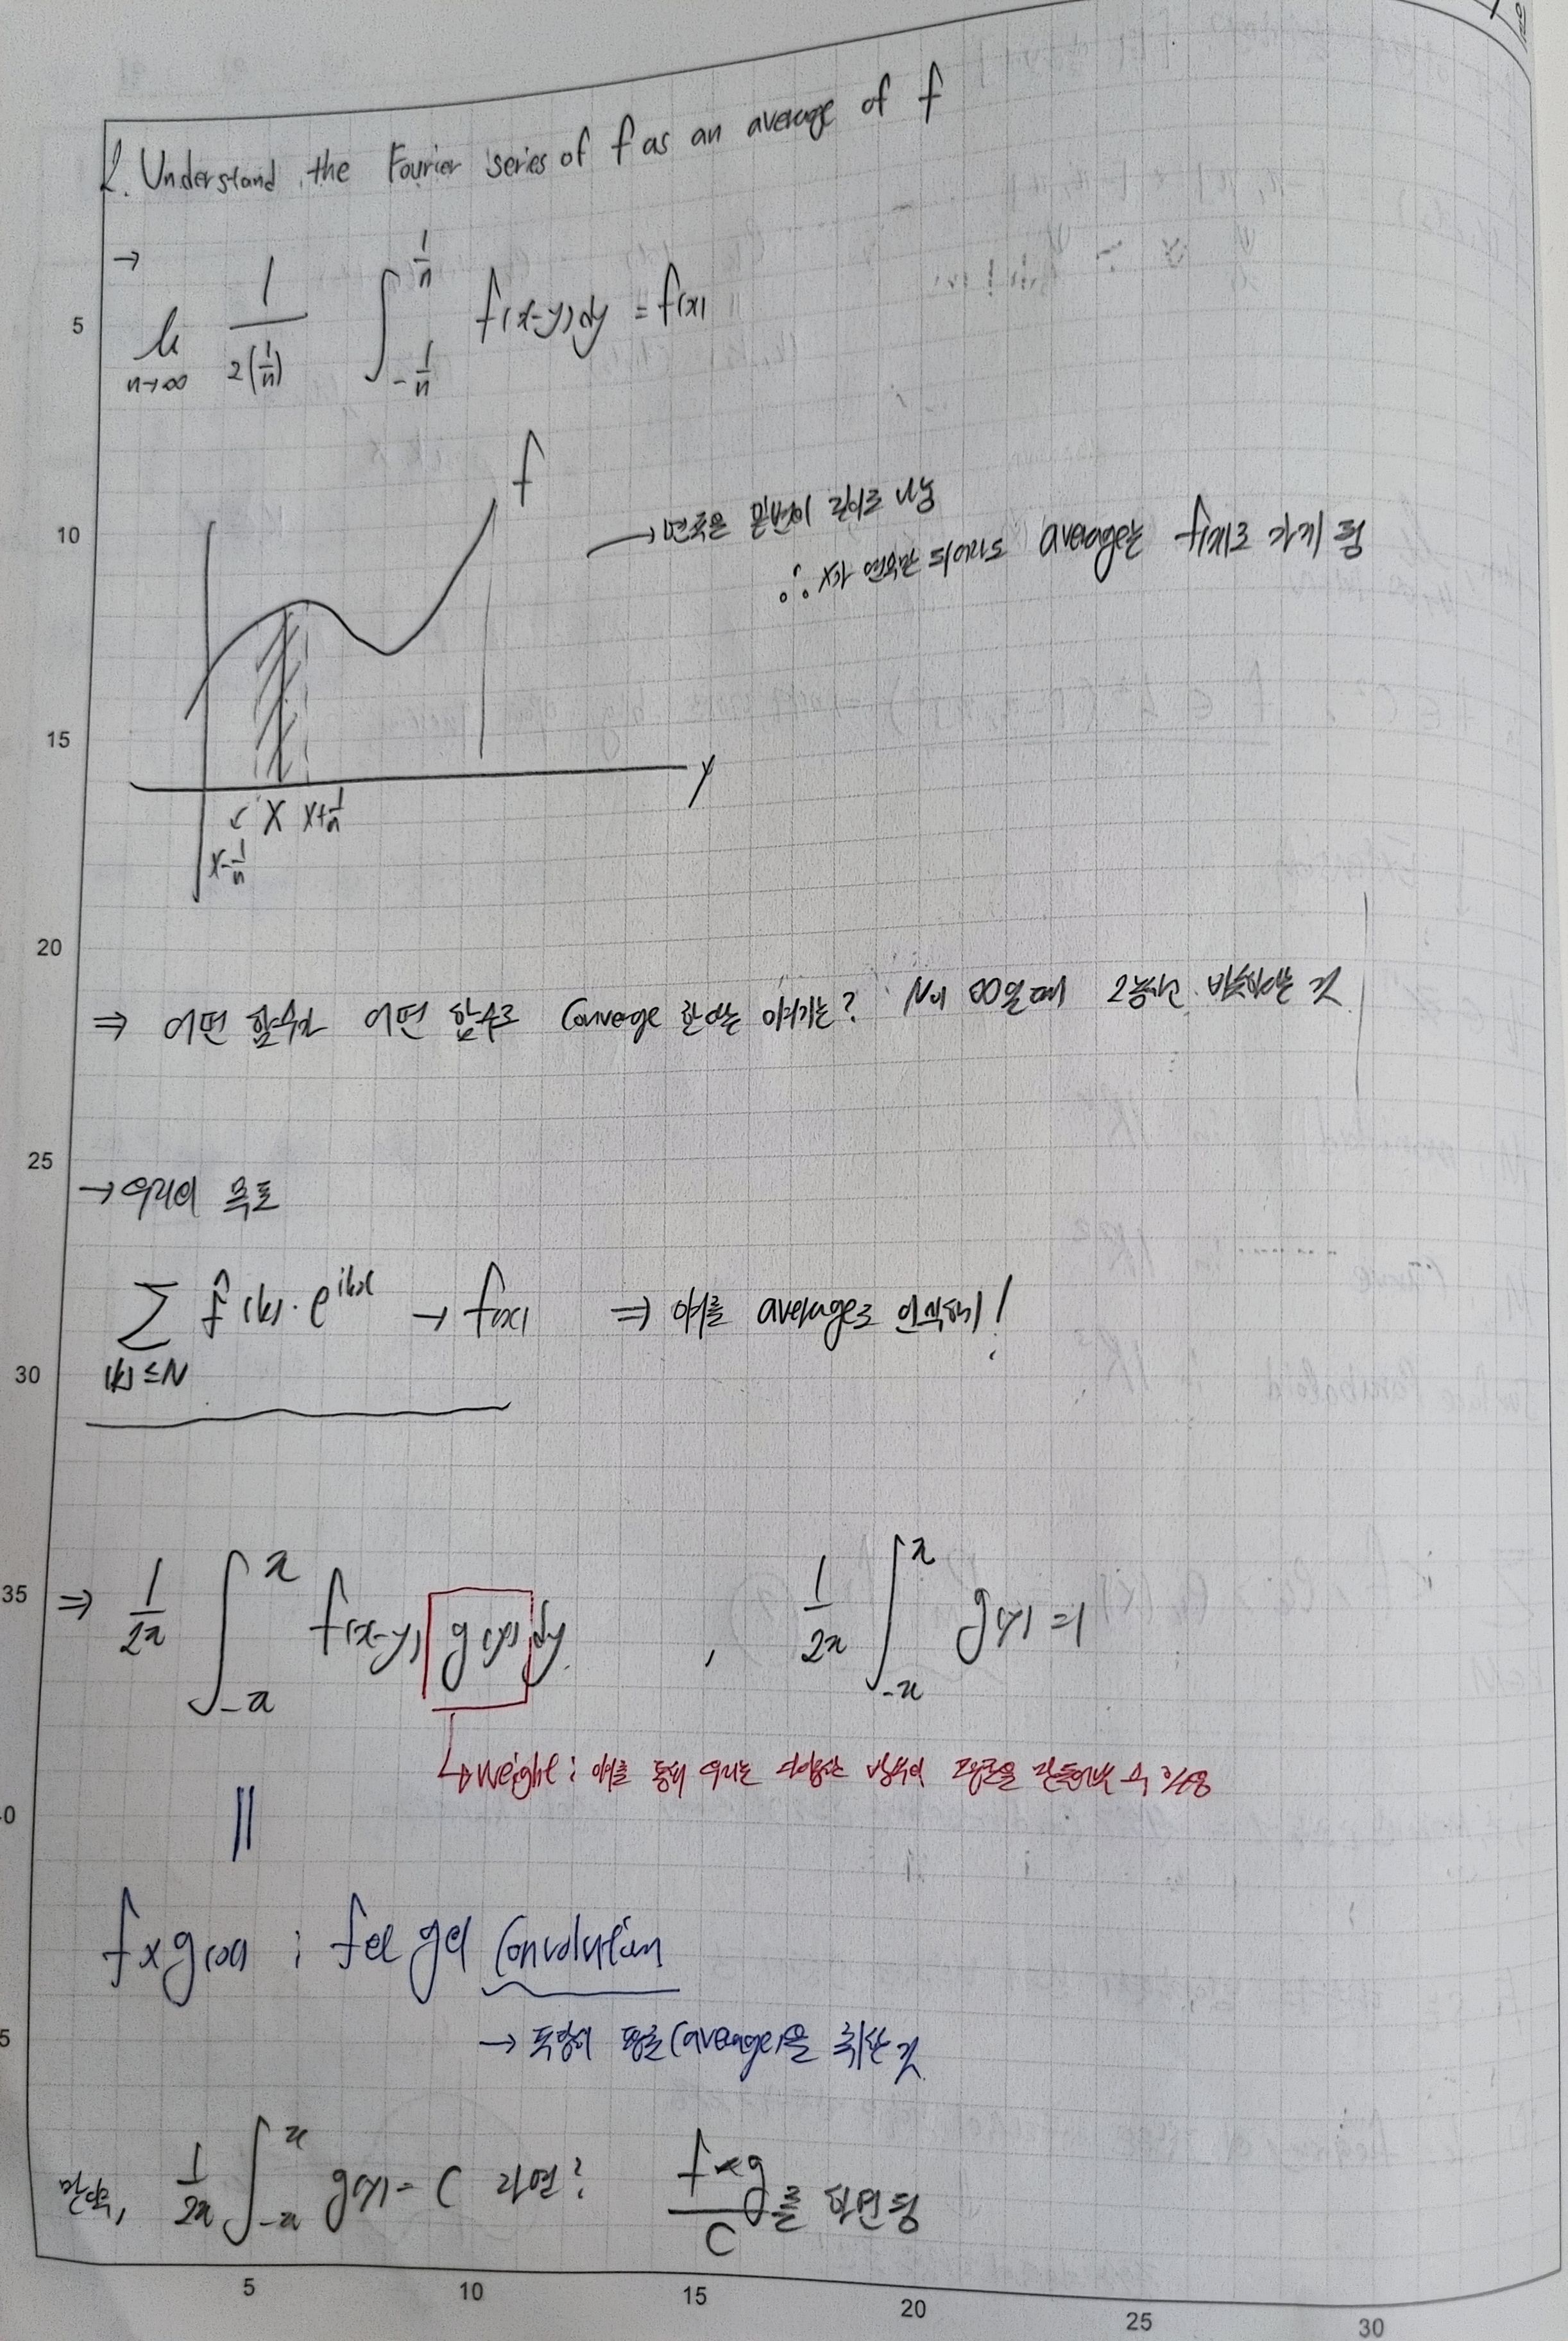 2. Understand the Fourier series of f as an average of f
→
lim n→∞ 1/2(1/n) ∫_{-1/n}^{1/n} f(x-y)dy = f(x)
f
→ 면적은 밑변의 길이로 나눔
∴ x가 연속만 되더라도 average는 f(x)로 가게 됨
y
x-1/n x x+1/n
⇒ 어떤 함수가 어떤 함수로 Converge 한다는 얘기는? N이 ∞일때 2개가 비슷하다는 것
→ 우리의 목표
∑_{|k|≤N} f̂(k)·e^{ikx} → f(x) ⇒ 얘를 average로 인식하기!
⇒ 1/2π ∫_{-π}^{π} f(x-y) g(y) dy , 1/2π ∫_{-π}^{π} g(y) = 1
↳ weight : 얘를 통해 우리는 다양한 방식의 평균을 만들어낼 수 있음
||
f×g(x) ; f와 g의 Convolution
→ 특정한 평균(average)을 취한 것
만약, 1/2π ∫_{-π}^{π} g(y) = C 라면? f×g/C 를 하면 됨
5
10
15
20
25
30
35
5
10
15
20
25
30